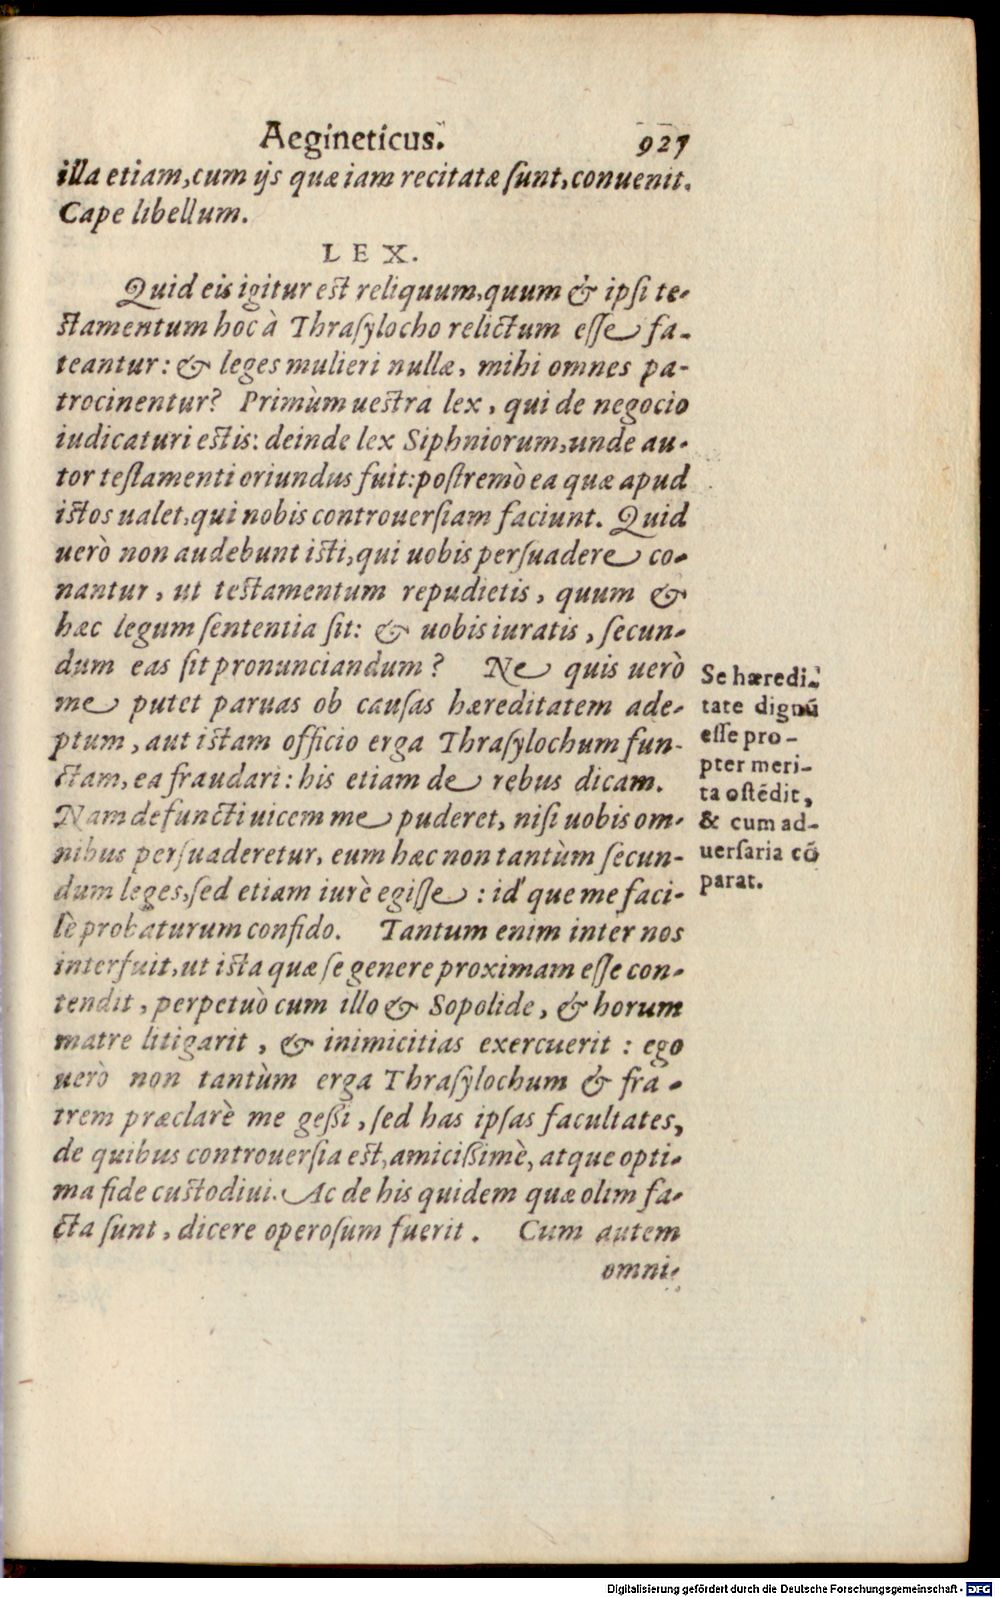 Aegineticus. 927
illa etiam, cum ijs quæ iam recitatæ ſunt, conuenit.
Cape libellum.
LEX.
Quid eis igitur est reliquum, quum & ipſi te-
stamentum hoc à Thraſylocho relictum eſſe fa-
teantur: & leges mulieri nullæ, mihi omnes pa-
trocinentur? Primùm uestra lex, qui de negocio
iudicaturi estis: deinde lex Siphniorum, unde au-
tor teſtamenti oriundus fuit: poſtremò ea quæ apud
istos ualet, qui nobis controuerſiam faciunt. Quid
uerò non audebunt isti, qui uobis perſuadere co-
nantur, ut testamentum repudietis, quum &
hæc legum ſententia ſit: & uobis iuratis, ſecun-
dum eas ſit pronunciandum? Ne quis uerò
me putet paruas ob cauſas hæreditatem ade-
ptum, aut istam officio erga Thraſylochum fun-
ctam, ea fraudari: his etiam de rebus dicam.
Nam defuncti uicem me puderet, niſi uobis om-
nibus perſuaderetur, eum hæc non tantùm ſecun-
dum leges, ſed etiam iurè egiſſe: id'que me faci-
lè probaturum confido. Tantum enim inter nos
interfuit, ut ista quæ ſe genere proximam eſſe con-
tendit, perpetuò cum illo & Sopolide, & horum
matre litigarit, & inimicitias exercuerit: ego
uerò non tantùm erga Thraſylochum & fra-
trem præclarè me geßi, ſed has ipſas facultates,
de quibus controuerſia est, amicißimè, atque opti-
ma fide custodiui. Ac de his quidem quæ olim fa-
cta ſunt, dicere operoſum fuerit. Cum autem
omni-
Se hæredi-
tate dignū
eſſe pro-
pter meri-
ta oſtēdit,
& cum ad-
uerſaria cō
parat.
Digitalisierung gefördert durch die Deutsche Forschungsgemeinschaft - DFG